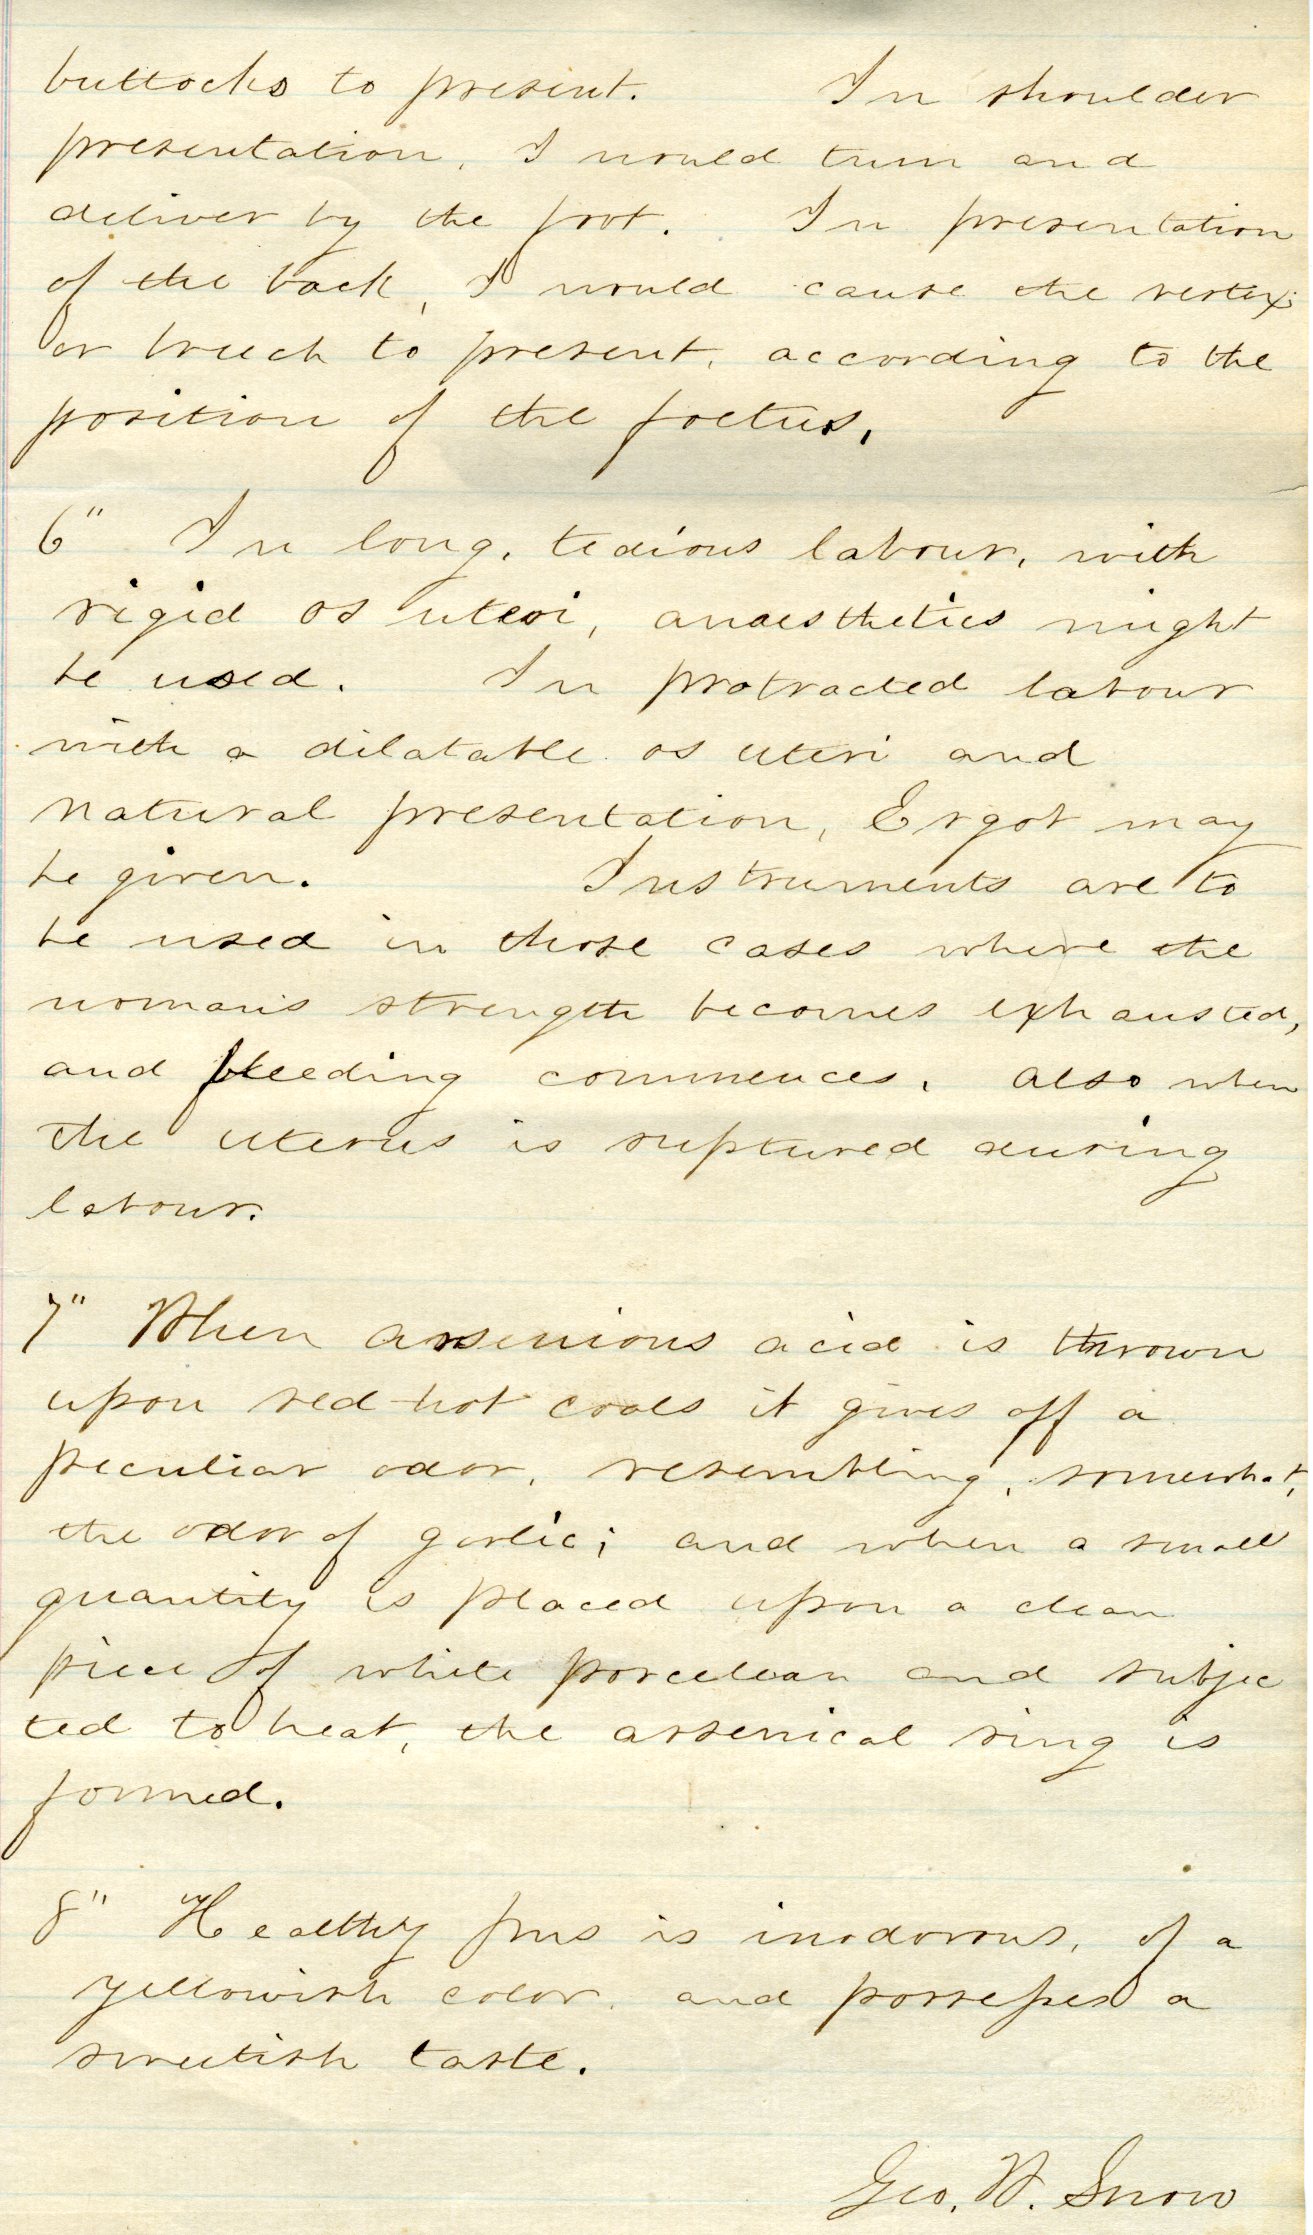 buttocks to present. In shoulder
presentation, I would turn and
deliver by the foot. In presentation
of the back, I would cause the vertex
or breech to present, according to the
position of the foetus.
6" In long, tedious labour, with
rigid os uteri, anaesthetics might
be used. In protracted labour
with a dilatable os uteri and
natural presentation, Ergot may
be given. Instruments are to
be used in those cases where the
woman's strength becomes exhausted,
and bleeding commences. also when
the uterus is ruptured during
labour.
7" When arsenious acid is thrown
upon red-hot coals it gives off a
peculiar odor, resembling, somewhat,
the odor of garlic; and when a small
quantity is placed upon a clean
piece of white porcelean and subjec
ted to heat, the arsenical ring is
formed.
8" Healthy pus is inodorous, of a
yellowish color, and possesses a
sweetish taste.
Geo. W. Snow